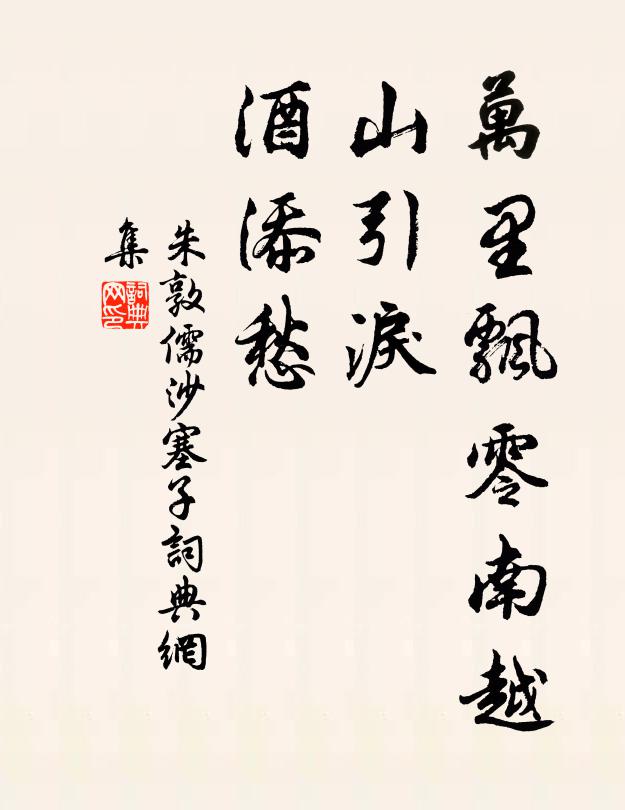 萬里飄零南越
山引淚
酒添愁
朱敦儒沙塞子詞典網
集
詞典
网印